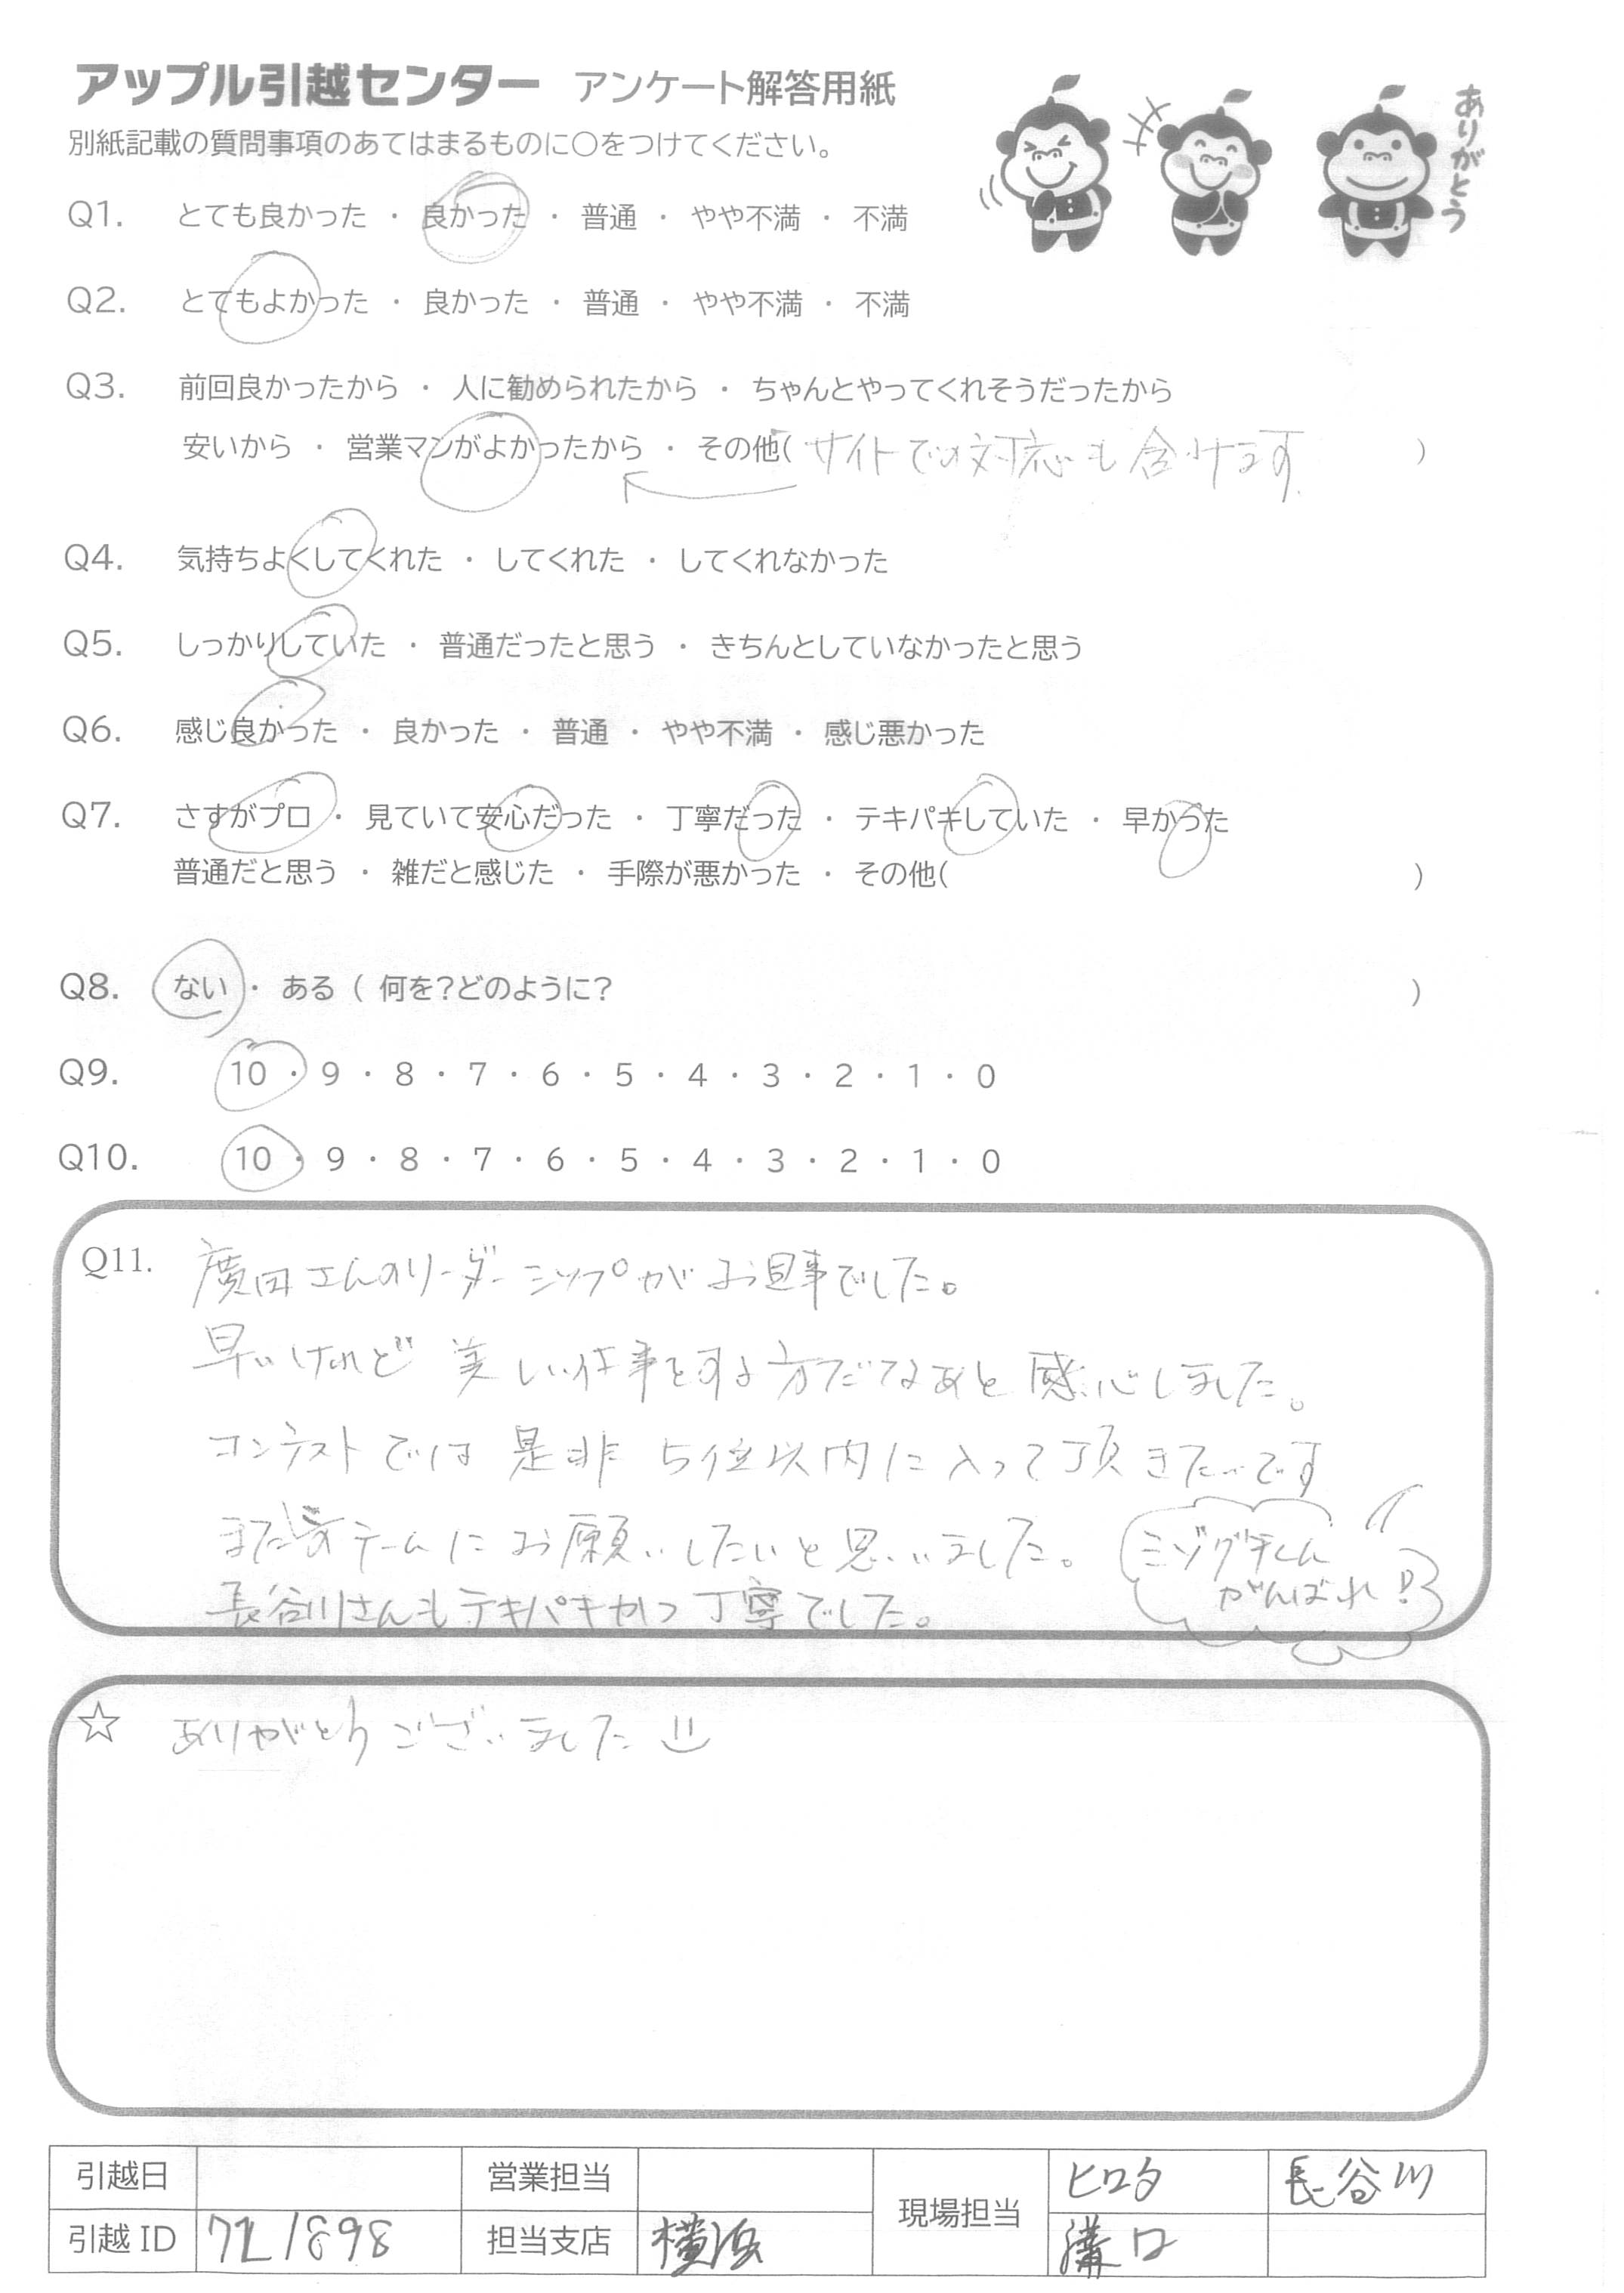 アップル引越センター アンケート解答用紙
別紙記載の質問事項のあてはまるものに○をつけてください。
ありがとう
Q1. とても良かった ・ 良かった ・ 普通 ・ やや不満 ・ 不満
Q2. とてもよかった ・ 良かった ・ 普通 ・ やや不満 ・ 不満
Q3. 前回良かったから ・ 人に勧められたから ・ ちゃんとやってくれそうだったから
安いから ・ 営業マンがよかったから ・ その他( サイトでの対応も含めます )
Q4. 気持ちよくしてくれた ・ してくれた ・ してくれなかった
Q5. しっかりしていた ・ 普通だったと思う ・ きちんとしていなかったと思う
Q6. 感じ良かった ・ 良かった ・ 普通 ・ やや不満 ・ 感じ悪かった
Q7. さすがプロ ・ 見ていて安心だった ・ 丁寧だった ・ テキパキしていた ・ 早かった
普通だと思う ・ 雑だと感じた ・ 手際が悪かった ・ その他( )
Q8. ない ・ ある ( 何を?どのように? )
Q9. 10 ・ 9 ・ 8 ・ 7 ・ 6 ・ 5 ・ 4 ・ 3 ・ 2 ・ 1 ・ 0
Q10. 10 ・ 9 ・ 8 ・ 7 ・ 6 ・ 5 ・ 4 ・ 3 ・ 2 ・ 1 ・ 0
Q11. 廣田さんのリーダーシップがお見事でした。
早いけれど 美しい仕事をする方だなあと感心しました。
コンテストでは 是非 5位以内に入って頂きたいです
また チームにお願いしたいと思いました。
ミゾグチくん
がんばれ!!
長谷川さんもテキパキかつ丁寧でした。
☆ ありがとうございました
引越日 営業担当 現場担当 ヒロタ 長谷川
引越 ID 721898 担当支店 横浜 溝口